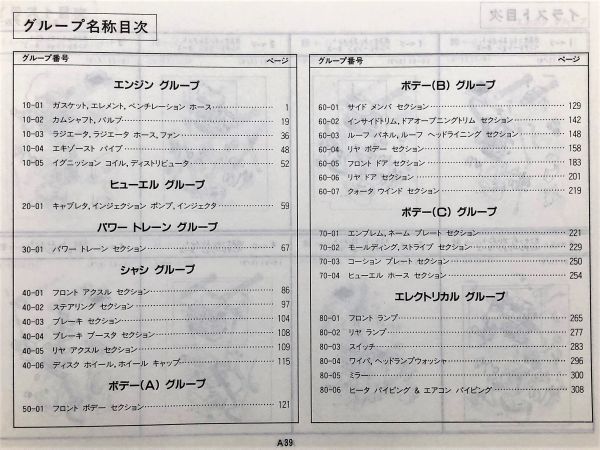 グループ名称目次
グループ番号 ページ
エンジン グループ
10-01 ガスケット, エレメント, ベンチレーション ホース 1
10-02 カムシャフト, バルブ 19
10-03 ラジエータ, ラジエータ ホース, ファン 36
10-04 エキゾースト パイプ 48
10-05 イグニッション コイル, ディストリビュータ 52
ヒューエル グループ
20-01 キャブレタ, インジェクション ポンプ, インジェクタ 59
パワー トレーン グループ
30-01 パワー トレーン セクション 67
シャシ グループ
40-01 フロント アクスル セクション 86
40-02 ステアリング セクション 97
40-03 ブレーキ セクション 104
40-04 ブレーキ ブースタ セクション 108
40-05 リヤ アクスル セクション 109
40-06 ディスク ホイール, ホイール キャップ 115
ボデー(A) グループ
50-01 フロント ボデー セクション 121
グループ番号 ページ
ボデー(B) グループ
60-01 サイド メンバ セクション 129
60-02 インサイドトリム, ドアオープニングトリム セクション 142
60-03 ルーフ パネル, ルーフ ヘッドライニング セクション 148
60-04 リヤ ボデー セクション 158
60-05 フロント ドア セクション 183
60-06 リヤ ドア セクション 201
60-07 クォータ ウインド セクション 219
ボデー(C) グループ
70-01 エンブレム, ネーム プレート セクション 221
70-02 モールディング, ストライプ セクション 229
70-03 コーション プレート セクション 250
70-04 ヒューエル ホース セクション 254
エレクトリカル グループ
80-01 フロント ランプ 265
80-02 リヤ ランプ 277
80-03 スイッチ 283
80-04 ワイパ, ヘッドランプウォッシャ 296
80-05 ミラー 300
80-06 ヒータ パイピング & エアコン パイピング 308
A39